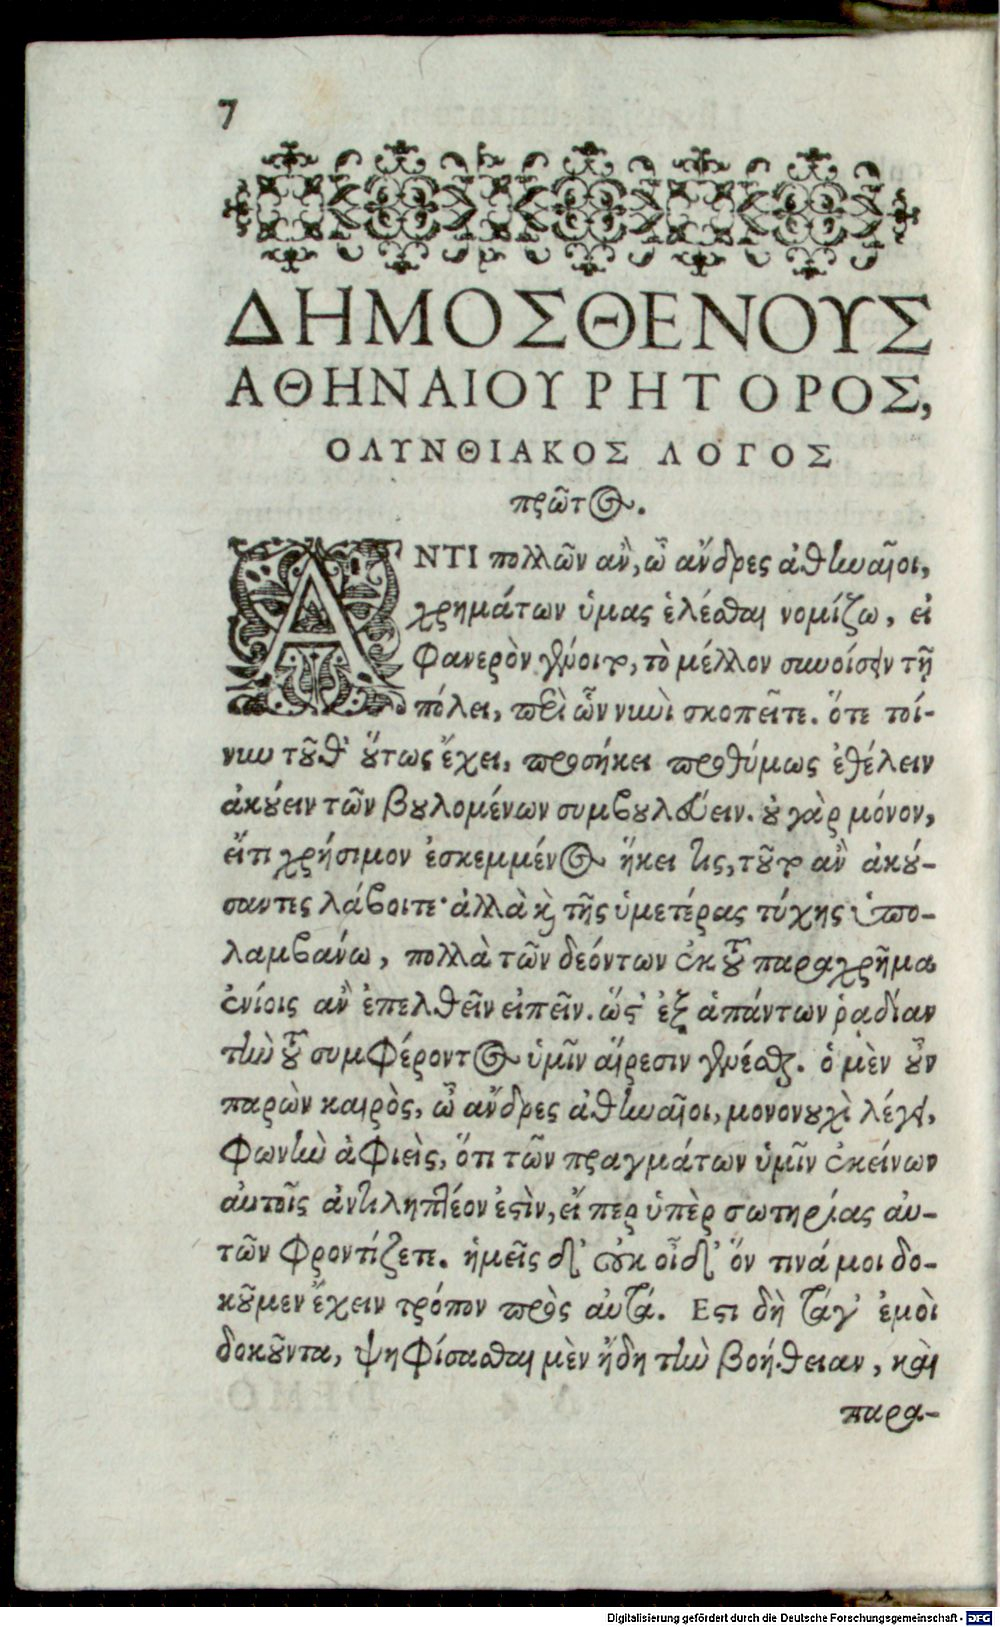 7
ΔΗΜΟΣΘΕΝΟΥΣ
ΑΘΗΝΑΙΟΥ ΡΗΤΟΡΟΣ,
ΟΛΥΝΘΙΑΚΟΣ ΛΟΓΟΣ
πρῶτος.
ΑΝΤΙ πολλῶν ἂν, ὦ ἄνδρες ἀθηναῖοι,
χρημάτων ὑμας ἑλέσθαι νομίζω, εἰ
φανερὸν γένοιτο, τὸ μέλλον συνοίσειν τῇ
πόλει, περὶ ὧν νυνὶ σκοπεῖτε. ὅτε τοί-
νυν τοῦθ' οὕτως ἔχει, προσήκει προθύμως ἐθέλειν
ἀκούειν τῶν βουλομένων συμβουλεύειν. οὐ γὰρ μόνον,
εἴτι χρήσιμον ἐσκεμμένος ἥκει τις, τοῦτο ἂν ἀκού-
σαντες λάβοιτε· ἀλλὰ καὶ τῆς ὑμετέρας τύχης ὑπο-
λαμβανώ, πολλὰ τῶν δεόντων ἐκ τοῦ παραχρῆμα
ἐνίοις ἂν ἐπελθεῖν εἰπεῖν. ὥστ' ἐξ ἁπάντων ῥαδίαν
τὴν τοῦ συμφέροντος ὑμῖν αἵρεσιν γενέσθαι. ὁ μὲν οὖν
παρὼν καιρὸς, ὦ ἄνδρες ἀθηναῖοι, μονονουχὶ λέγει,
φωνὴν ἀφιεὶς, ὅτι τῶν πραγμάτων ὑμῖν ἐκείνων
αὐτοῖς ἀντιληπτέον ἐστὶν, εἴ περ ὑπὲρ σωτηρίας αὐ-
τῶν φροντίζετε. ἡμεῖς δ' οὐκ οἶδ' ὅν τινά μοι δο-
κοῦμεν ἔχειν τρόπον πρὸς αὐτά. Εστι δὴ τάγ' ἐμοὶ
δοκοῦντα, ψηφίσασθαι μὲν ἤδη τὴν βοήθειαν, καὶ
παρα-
Digitalisierung gefördert durch die Deutsche Forschungsgemeinschaft - DFG